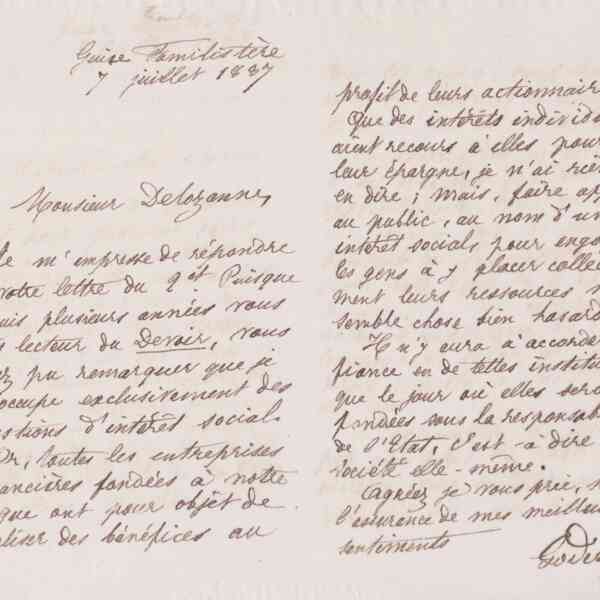 Guise Familistère
7 juillet 1887
Monsieur Delozanne,
Je m'empresse de répondre
votre lettre du Puisque
uis plusieurs années vous
lecteur du Devoir, vous
ez pu remarquer que je
occupe exclusivement des
estions d'intérêt social.
Or, toutes les entreprises
ancières fondées à notre
que ont pour objet de
aliser des bénéfices au
profit de leurs actionnair
Que des intérêts individu
aient recours à elles pour
leur épargne, je n'ai rien
en dire ; mais, faire app
au public, au nom d'un
intérêt social pour enga
les gens à y placer collec
ment leurs ressources
semble chose bien hasard
Il n'y aura à accorder
fiance en de telles institu
que le jour où elles sero
fondées sous la responsab
de l'Etat, c'est-à-dire
société elle-même.
Agréez je vous prie,
l'assurance de mes meilleu
sentiments
Godin